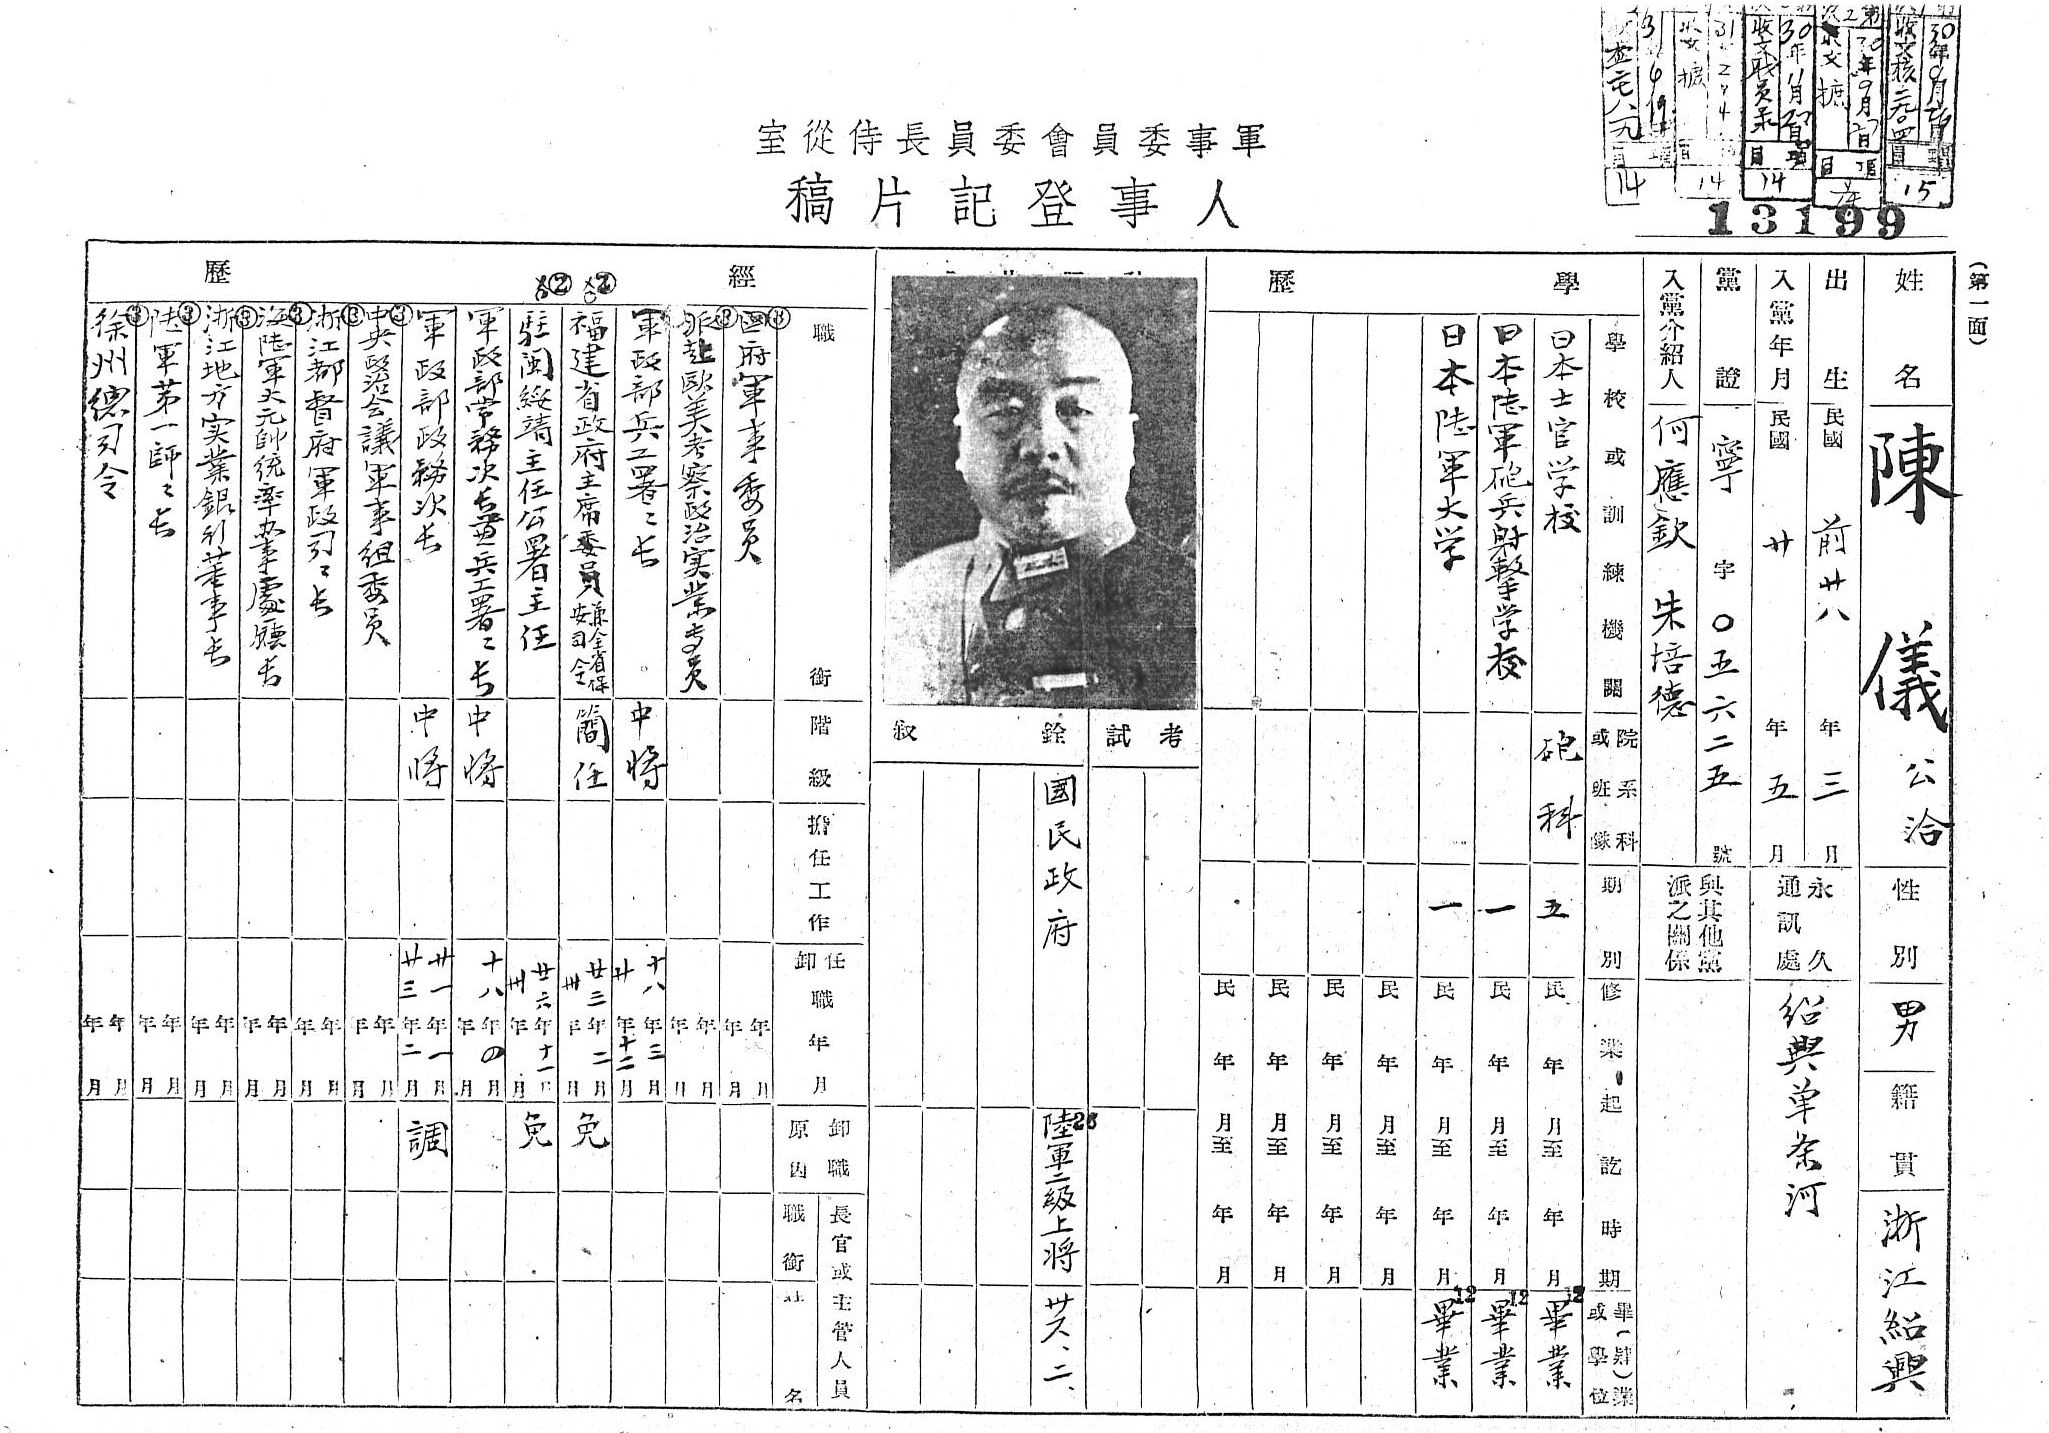 軍事委員會委員長侍從室
人事登記片稿
13199
(第一面)
姓名
陳儀 公洽
性別
男
籍貫
浙江紹興
出生
民國前廿八年三月
入黨年月
民國廿年五月
永久通訊處
紹興单条河
黨證
寧字〇五六二五號
入黨介紹人
何應欽 朱培德
與其他黨派之關係
學歷
學校或訓練機關
院系科或班隊
期別
修業起訖時期
畢(肄)業或學位
日本士官学校
砲科
五
民年月至年月
畢業
日本陸軍砲兵射擊学校
一
民年月至年月
畢業
日本陸軍大学
一
民年月至年月
畢業
民年月至年月
民年月至年月
民年月至年月
民年月至年月
考試
銓叙
國民政府
陸軍二級上將
廿八、二、
經歷
職銜
階級
擔任工作
任卸職年月
卸職原因
長官或主管人員
職銜
姓名
國府軍事委員
年月
年月
派赴歐美考察政治实業专員
年月
年月
軍政部兵工署々长
中將
十八年三月
廿年十二月
福建省政府主席委員 兼全省保安司令
簡任
廿三年二月
卅年月
免
駐閩綏靖主任公署主任
廿六年十一月
卅年月
免
軍政部常務次长兼兵工署々长
中將
十八年四月
年月
軍政部政務次长
中將
廿一年一月
廿三年二月
調
中央政治会議軍事組委員
年月
年月
浙江都督府軍政司々长
年月
年月
海陸軍大元帥統率办事處廳长
年月
年月
浙江地方实業銀行董事长
年月
年月
陸軍第一師々长
年月
年月
徐州總司令
年月
年月